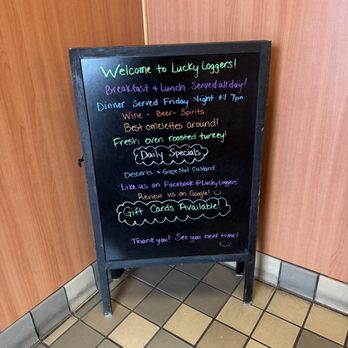 Welcome to Lucky Loggers!
Breakfast & Lunch Served all day!
Dinner Served Friday Night til 7pm
Wine - Beer - Spirits
Best omelettes around!
Fresh oven roasted turkey!
Daily Specials
Desserts & Grape Nut Custard
Like us on Facebook @LuckyLoggers
Review us on Google!
Gift Cards Available!
Thank you! See you next time!